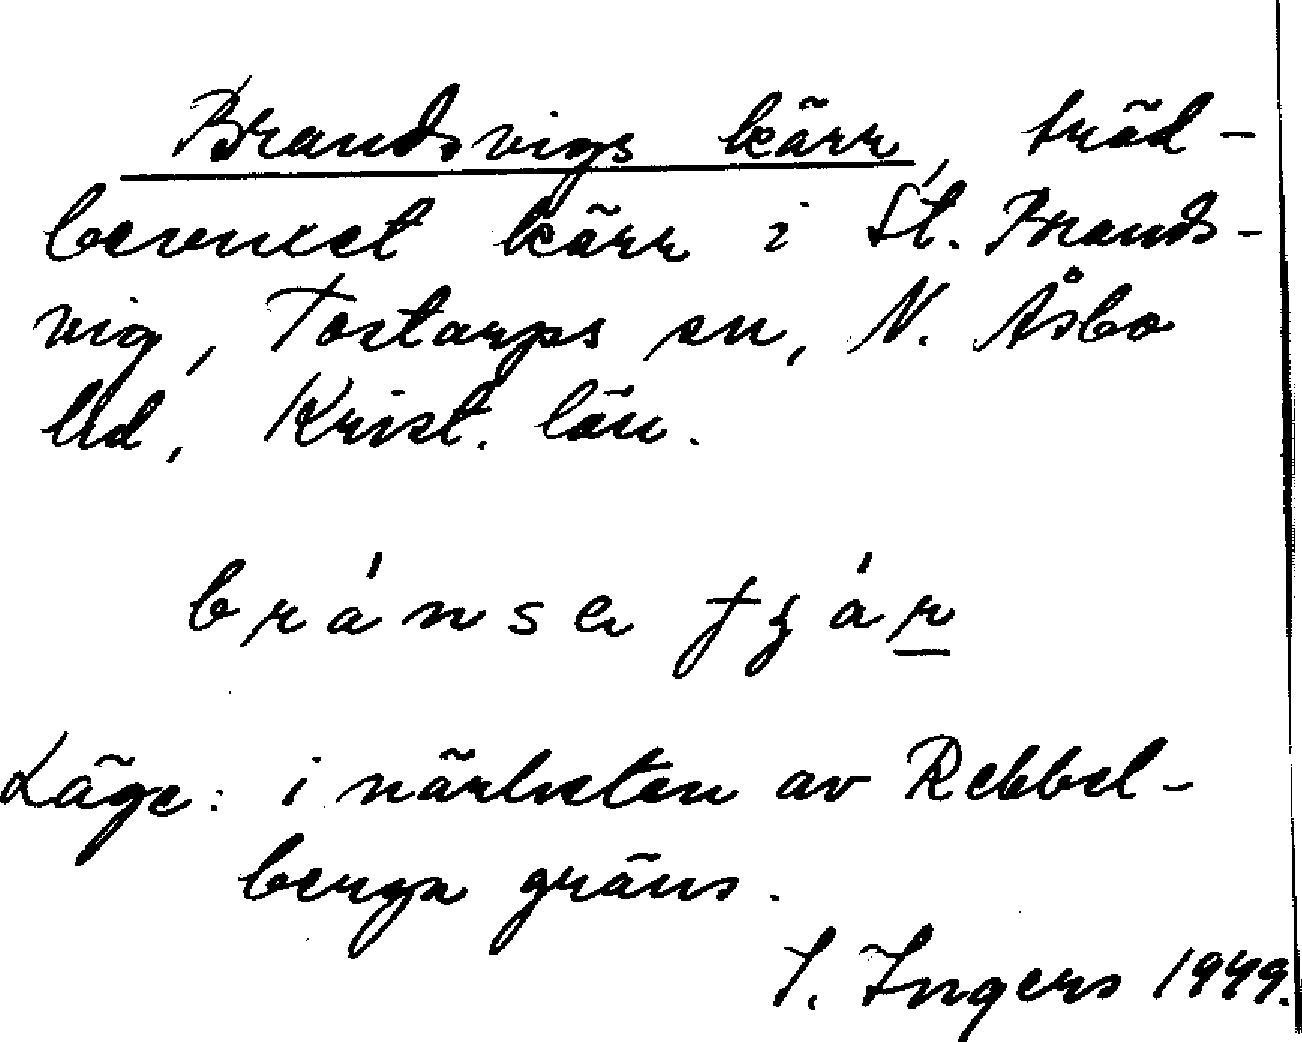 Brandsvigs kärr, träd-
bevuxet kärr i St. Brands-
vig, Tostarps sn, N. Åsbo
hd, Krist. län.
bránsa tʃár
Läge: i närheten av Rebbel-
berga gräns.
I. Ingers 1949.